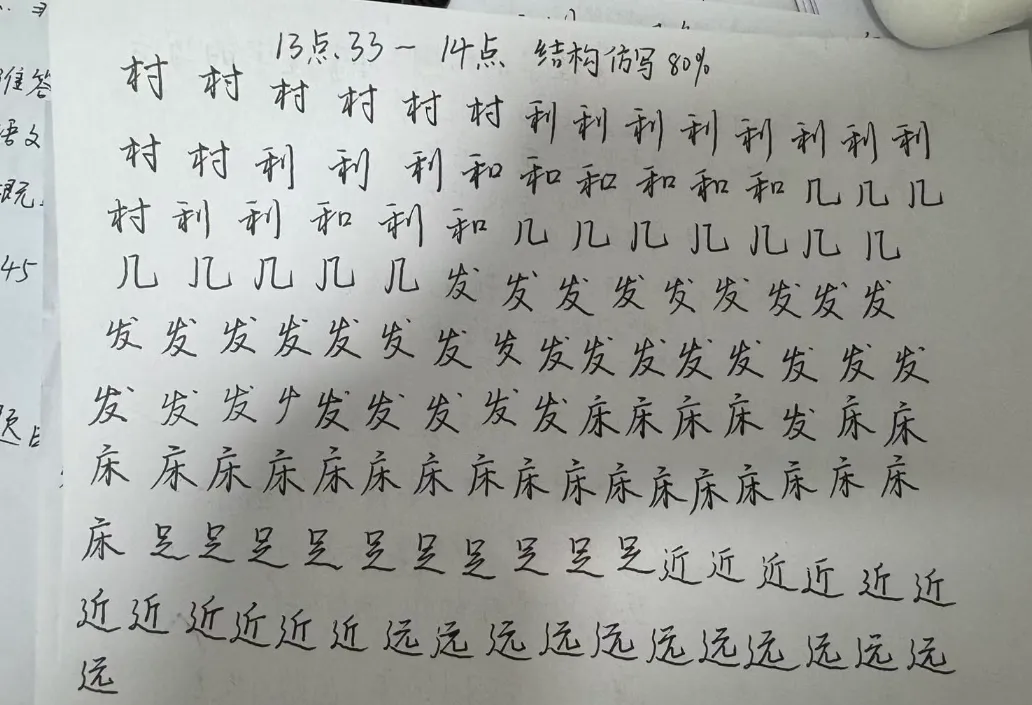 13点33一 14点 结构仿写80%
村 村 村 村 村 村 利 利 利 利 利 利 利 利
村 村 利 利 利 和 和 和 和 和 和 几 几 几
村 利 利 和 利 和 几 几 几 几 几 几 几
几 几 几 几 几 发 发 发 发 发 发 发 发 发
发 发 发 发 发 发 发 发 发 发 发 发 发 发 发 发
发 发 发 发 发 发 发 发 床 床 床 床 发 床 床
床 床 床 床 床 床 床 床 床 床 床 床 床 床 床 床 床
床 足 足 足 足 足 足 足 足 足 足 近 近 近 近 近 近
近 近 近 近 近 近 远 远 远 远 远 远 远 远 远 远 远
远
准答
语文
既
45